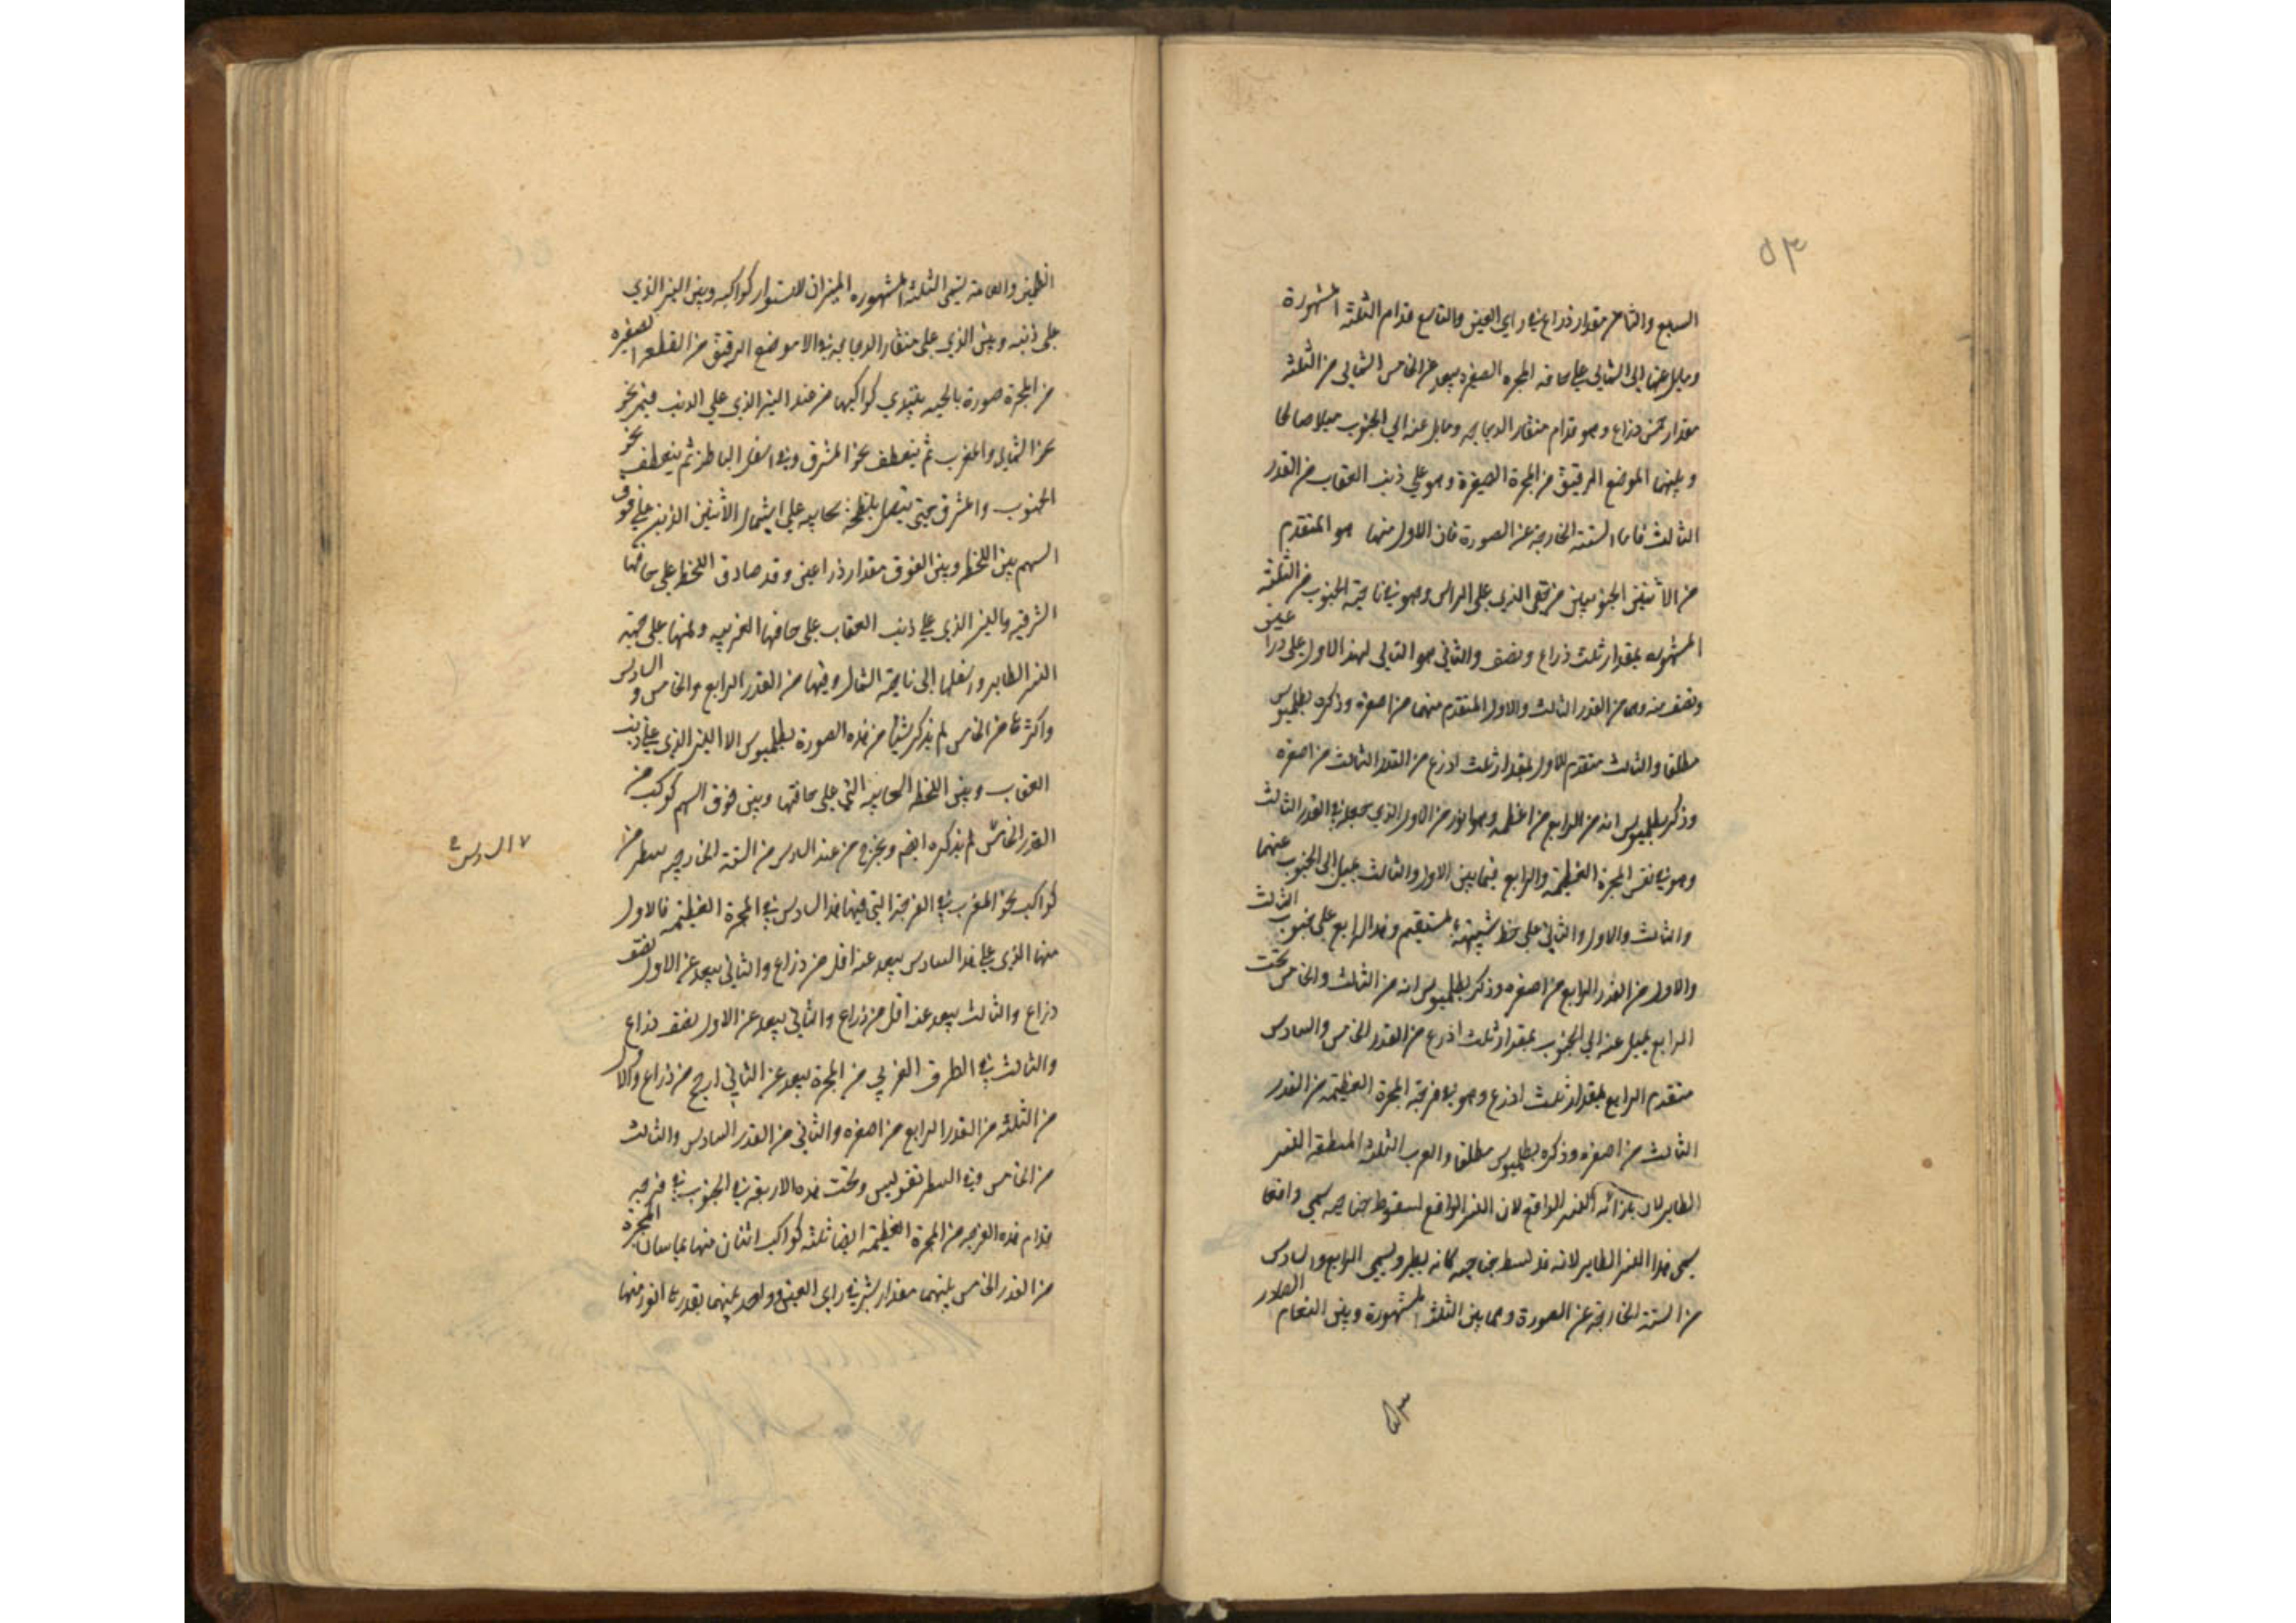 ٥٣
السابع والثامن مقدار ذراع في راي العين والتاسع قدام الثلثة المشهورة
ومايل عنها الى الشمال على حافه المجره الصغيره يبعد عن الخامس الشمالي من الثلثة
مقدار خمس ذراع وهو قدام منقار الدجاجه ومايل عنه الي الجنوب ميلا صالحا
وبينهما الموضع الرقيق من المجرة الصغيرة وهو علي ذنب العقاب من القدر
الثالث فاما الستة الخارجة عن الصورة فان الاول منها هو المتقدم
من الاثنين الجنوبيين من الذي على الراس وهو في ناحية الجنوب من الثلثة
المشهوره بمقدار ثلث ذراع ونصف والثاني هو التالي لهذا الاول على ذراعين
ونصف منه وهما من القدر الثالث والاول المتقدم منهما من اصغره وذكره بطلميوس
مطلقا والثالث متقدم للاول بمقدار ثلث اذرع من القدر الثالث من اصغره
وذكر بطلميوس انه من الرابع من اعظمه وهو انور من الاول الذي جعله في القدر الثالث
وهو في نفس المجرة العظيمة والرابع فيما بين الاول والثالث يميل الى الجنوب عنهما
والثالث والاول والثاني على خط شبيه بمستقيم وهذا الرابع على جنوب الثالث
والاول من القدر الرابع من اصغره وذكر بطلميوس انه من الثالث والخامس تحت
الرابع يميل عنه الي الجنوب بمقدار ثلث اذرع من القدر الخامس والسادس
متقدم الرابع بمقدار ثلث اذرع وهو في فرجة المجرة العظيمة من القدر
الثالث من اصغره وذكره بطلميوس مطلقا والعرب الثلثة النسر
الطاير لان بازائه النسر الواقع لان النسر الواقع لسقوط جناحيه سمي واقعا
يسمى هذا النسر الطاير لانه قد بسط جناحيه كانه يطير ويسمى الرابع والسادس
من الستة الخارجة عن الصورة وهما بين الثلثة المشهورة وبين النعام الصادر
٥٣
الظليمين والعامة تسمى الثلثة المشهوره الميزان لاستوار كواكبه وبين النير الذي
على ذنبه وبين الذي على منقار الدجاجه في الموضع الرقيق من القطعه الصغيره
من المجرة صورة بالجيه يبتدي كواكبها من عند النير الذي علي الذنب فيمر نحو
نحو الشمال والمغرب ثم ينعطف نحو المشرق وفي اسفل الباطن ثم ينعطف نحو
الجنوب والمشرق حتى يتصل بلطخة سحابيه على الشمال الاثنين الذين علي فوق
السهم بين اللطخ وبين الفوق مقدار ذراعين وقد صادق اللطخ على حافتها
الشرقيه والنير الذي علي ذنب العقاب على حافتها الغربيه وفمها على جهة
النسر الطاير واسفلها الى ناحية الشمال وفيها من القدر الرابع والخامس والسادس
واكثرها من الخامس لم يذكر شيئا من هذه الصورة بطلميوس الا النير الذي علي ذنب
العقاب وبين اللطخ السحابيه التي على حافتها وبين فوق السهم كوكب من
القدر الخامس لم يذكره ايضا ويخرج من عند السادس من الستة الخارجيه سطر من
كواكب نحو المغرب في الفرجة التي فيها هذا السادس في المجرة العظيمة فالاول
منها الذي علي هذا السادس يبعد عنه اقل من ذراع والثاني يبعد عن الاول نصف
ذراع والثالث يبعد عنه اقل من ذراع والثاني يبعد عن الاول نصف ذراع
والثالث في الطرف الغربي من المجرة يبعد عن الثاني ارجح من ذراع والاول
من الثلثه من القدر الرابع من اصغره والثاني من القدر السادس والثالث
من الخامس وفي السطر تقويس وتحت هذه الاربعة في الجنوب في فرجه
قدام هذه الفرجه من المجرة العظيمه ايضا ثلثه كواكب اثنان منها يماسان المجرة
من القدر الخامس بينهما مقدار شبر في راى العين وواحد بينهما انور منهما
٧ السادس